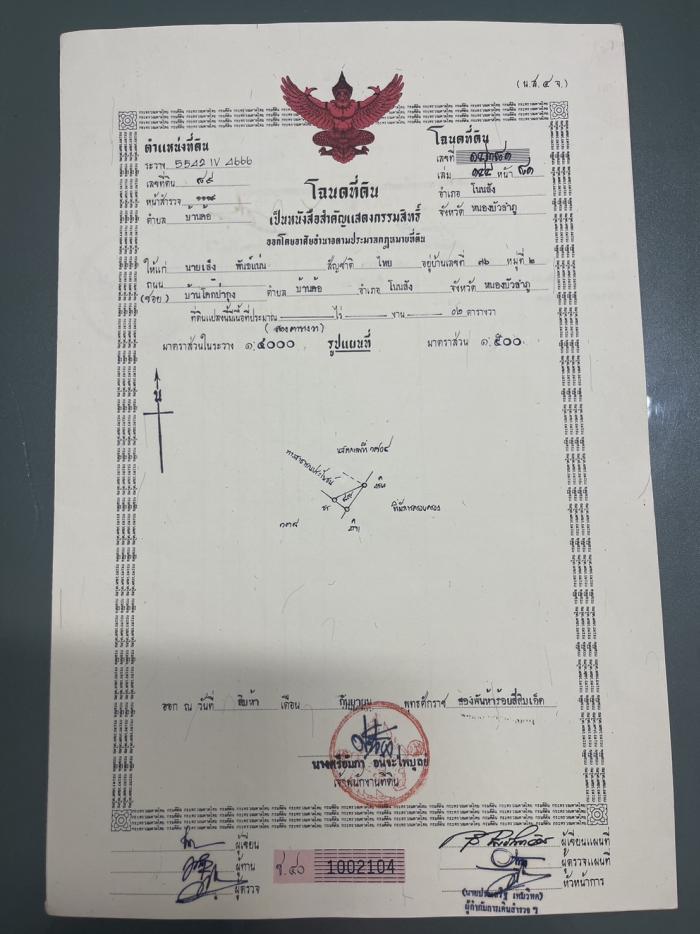 (น.ส. ๔ จ.)
ตำแหน่งที่ดิน
ระวาง 5542 IV 4666
เลขที่ดิน ๙๙
หน้าสำรวจ
ตำบล บ้านค้อ
โฉนดที่ดิน
เลขที่
เล่ม หน้า
อำเภอ โนนสัง
จังหวัด หนองบัวลำภู
โฉนดที่ดิน
เป็นหนังสือสำคัญแสดงกรรมสิทธิ์
ออกโดยอาศัยอำนาจตามประมวลกฎหมายที่ดิน
ให้แก่ นายเส็ง พันธ์แน่น สัญชาติ ไทย อยู่บ้านเลขที่ ๗๖ หมู่ที่ ๒
ถนน
(ซอย) บ้านโคกป่ากุง ตำบล บ้านค้อ อำเภอ โนนสัง จังหวัด หนองบัวลำภู
ที่ดินแปลงนี้มีเนื้อที่ประมาณ ไร่ งาน ๐๒ ตารางวา
(สองตารางวา)
มาตราส่วนในระวาง ๑:๔๐๐๐ รูปแผนที่ มาตราส่วน ๑:๕๐๐
น
ทางสาธารณประโยชน์
ที่มีการครอบครอง
ออก ณ วันที่ สิบห้า เดือน กันยายน พุทธศักราช สองพันห้าร้อยสี่สิบเอ็ด
เจ้าพนักงานที่ดิน
ผู้เขียน
ผู้ทาน
ผู้ตรวจ
ช.๔๐ 1002104
ผู้เขียนแผนที่
ผู้ตรวจแผนที่
หัวหน้าการ
ผู้กำกับการเดินสำรวจ ฯ